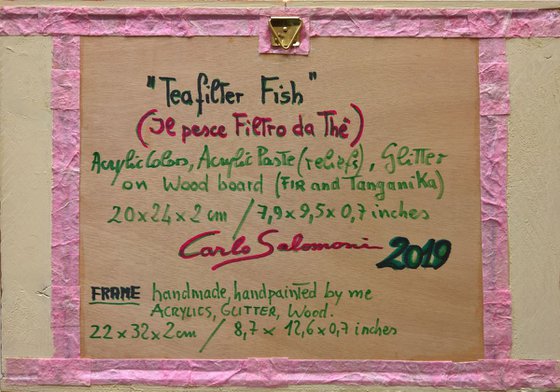 "Teafilter Fish"
(Il pesce Filtro da Thè)
Acrylic Colors, Acrylic Paste (reliefs), Glitter
on Wood board (FIR and Tanganika)
20x24x2 cm / 7,9x9,5x0,7 inches
Carlo Salomoni 2019
FRAME handmade, handpainted by me
ACRYLICS, GLITTER, Wood.
22x32x2cm / 8,7x 12,6x0,7 inches